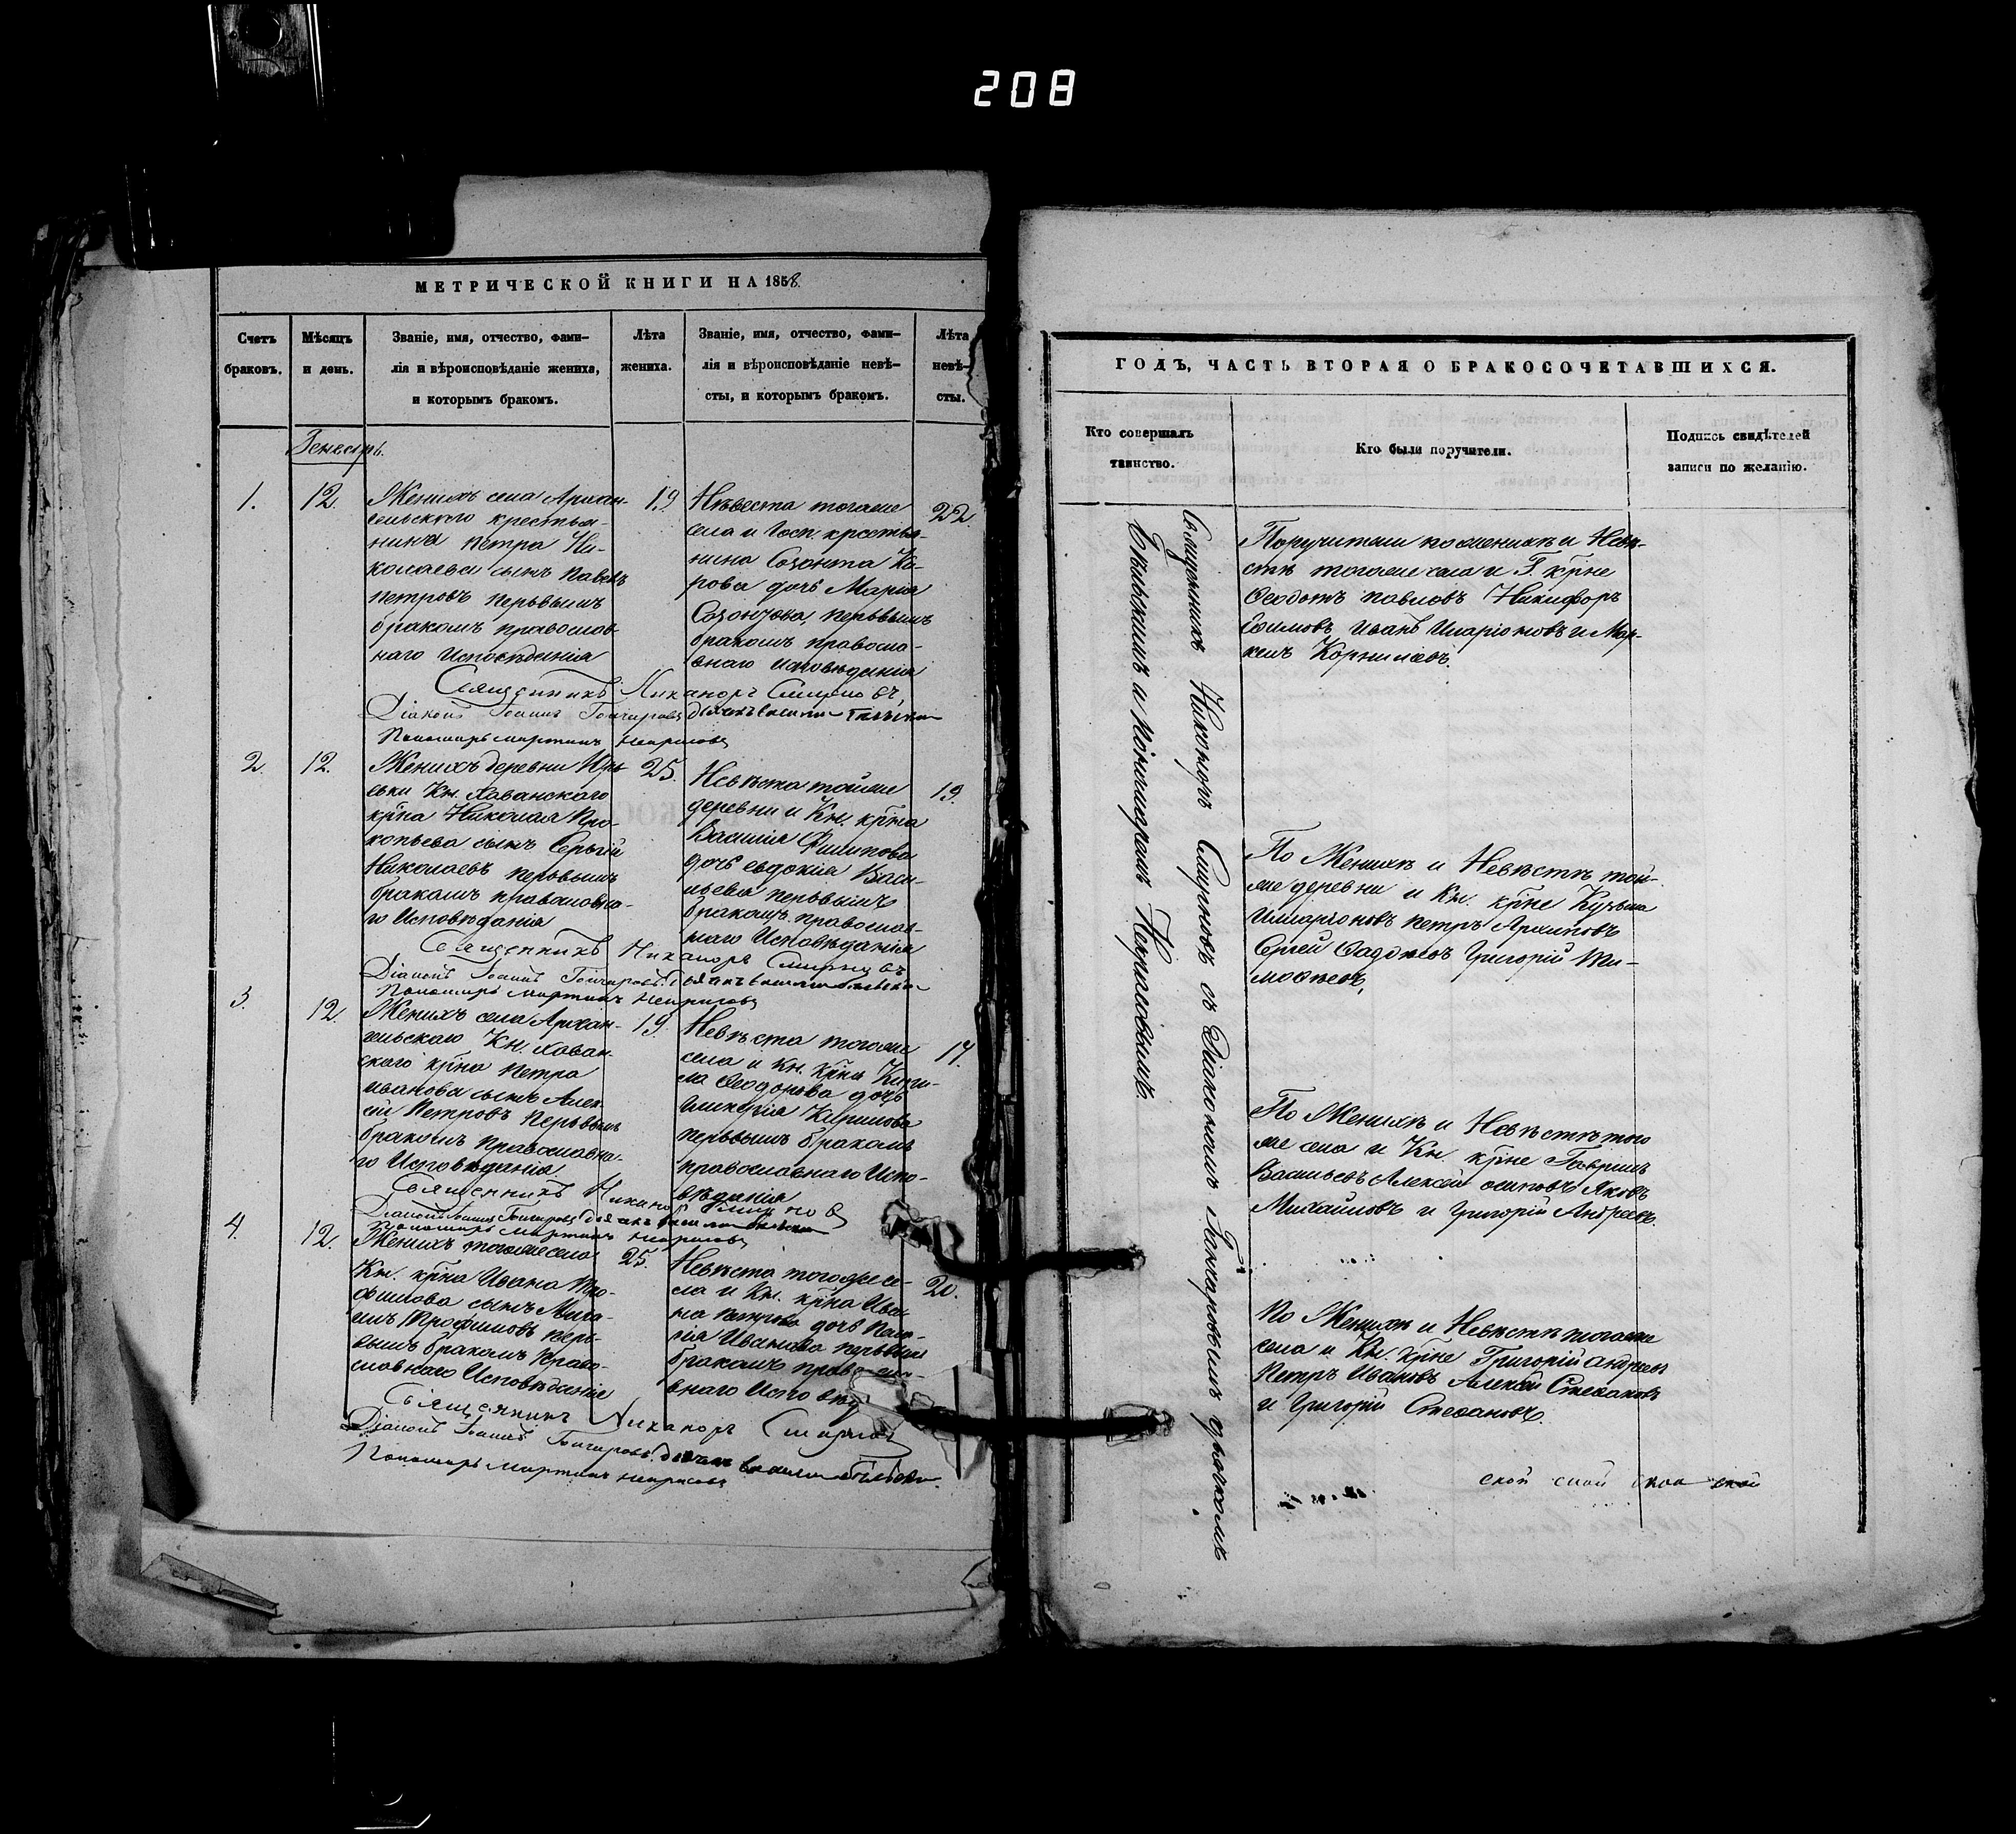 208
МЕТРИЧЕСКОЙ КНИГИ НА 1858.
Счетъ браковъ.
Мѣсяцъ и день.
Званіе, имя, отчество, фами-
лія и вѣроисповѣданіе жениха,
и которымъ бракомъ.
Лѣта жениха.
Званіе, имя, отчество, фами-
лія и вѣроисповѣданіе невѣ-
сты, и которымъ бракомъ.
Лѣта невѣ-
сты.
1.
12.
Женихъ села Архан-
гельского крестья-
нина Петра Ни-
колаева сынъ Павелъ
Петровъ перьвымъ
бракомъ православ-
наго Исповѣданія
19
Невѣста тогоже
села и Госп. крестья-
нина Созонта Ка-
рова дочь Марія
Созонтова, перьвымъ
бракомъ правосла-
внаго Исповѣданія
22.
Священникъ Никаноръ Смирновъ,
Діаконъ Іоаннъ Гончаровъ
Пономарь Мартинъ Некрасовъ
2.
12.
Женихъ деревни
Кн. Хаванского
кр̃на Николая Про-
копьева сынъ Сергій
Николаевъ перьвымъ
бракомъ православна-
го Исповѣданія
25.
Невѣста тойже
деревни и Кн. кр̃на
Василія Филипова
дочь Евдокія Васи-
льева перьвымъ
бракомъ православ-
наго Исповѣданія
19.
Священникъ Никаноръ Смирновъ
Діаконъ Іоаннъ Гончаровъ
Пономарь Мартинъ Некрасовъ
3.
12.
Женихъ села Архан-
гельскаго Кн. Хаван-
скаго кр̃на Петра
Иванова сынъ Алек-
сѣй Петровъ перьвымъ
бракомъ православна-
го Исповѣданія
19.
Невѣста тогоже
села и Кн. кр̃на Кири-
ла Ѳеодорова дочь
Гликерія Кирилова
перьвымъ бракомъ
православнаго Испо-
вѣданія
17.
Священникъ Никаноръ Смирновъ
Діаконъ Іоаннъ Гончаровъ
Пономарь Мартинъ Некрасовъ
4.
12.
Женихъ тогоже села
Кн. кр̃на Ивана Тро-
филова сынъ Миха-
илъ Трофиловъ перь-
вымъ бракомъ Право-
славнаго Исповѣданіе
25.
Невѣста тогоже се-
ла и Кн. кр̃на Ива-
на Петрова дочь Пела-
гія Иванова перьвымъ
бракомъ правосла-
внаго Исповѣд
20.
Священникъ Никаноръ Смирновъ
Діаконъ Іоаннъ Гончаровъ
Пономарь Мартинъ Некрасовъ
ГОДЪ, ЧАСТЬ ВТОРАЯ О БРАКОСОЧЕТАВШИХСЯ.
Кто совершалъ таинство.
Кто были поручители.
Подпись свидѣтелей
записи по желанію.
Священникъ Никаноръ Смирновъ съ Діакономъ Гончаровымъ дьячкомъ
и Пономаремъ Некрасовымъ.
Поручители по женихѣ и Невѣ-
стѣ тогоже села и Г. кр̃не
Ѳеодотъ Павловъ Никифоръ
Ефимовъ Иванъ Иларіоновъ и Мар-
келъ Корниловъ.
По Женихѣ и Невѣстѣ той-
же деревни и Кн. кр̃не Кузьма
Иларіоновъ Петръ Архиповъ
Сергей Ѳаддѣевъ Григорій Ти-
моѳѣевъ,
По Женихѣ и Невѣстѣ того
же села и Кн. кр̃не Гаврилъ
Васильевъ Алексѣй Осиповъ Яковъ
Михайловъ и Григорій Андреевъ.
По Женихѣ и Невѣстѣ тогоже
села и Кн. кр̃не Григорій Андреевъ
Петръ Ивановъ Алексѣй Степановъ
и Григорій Степановъ.